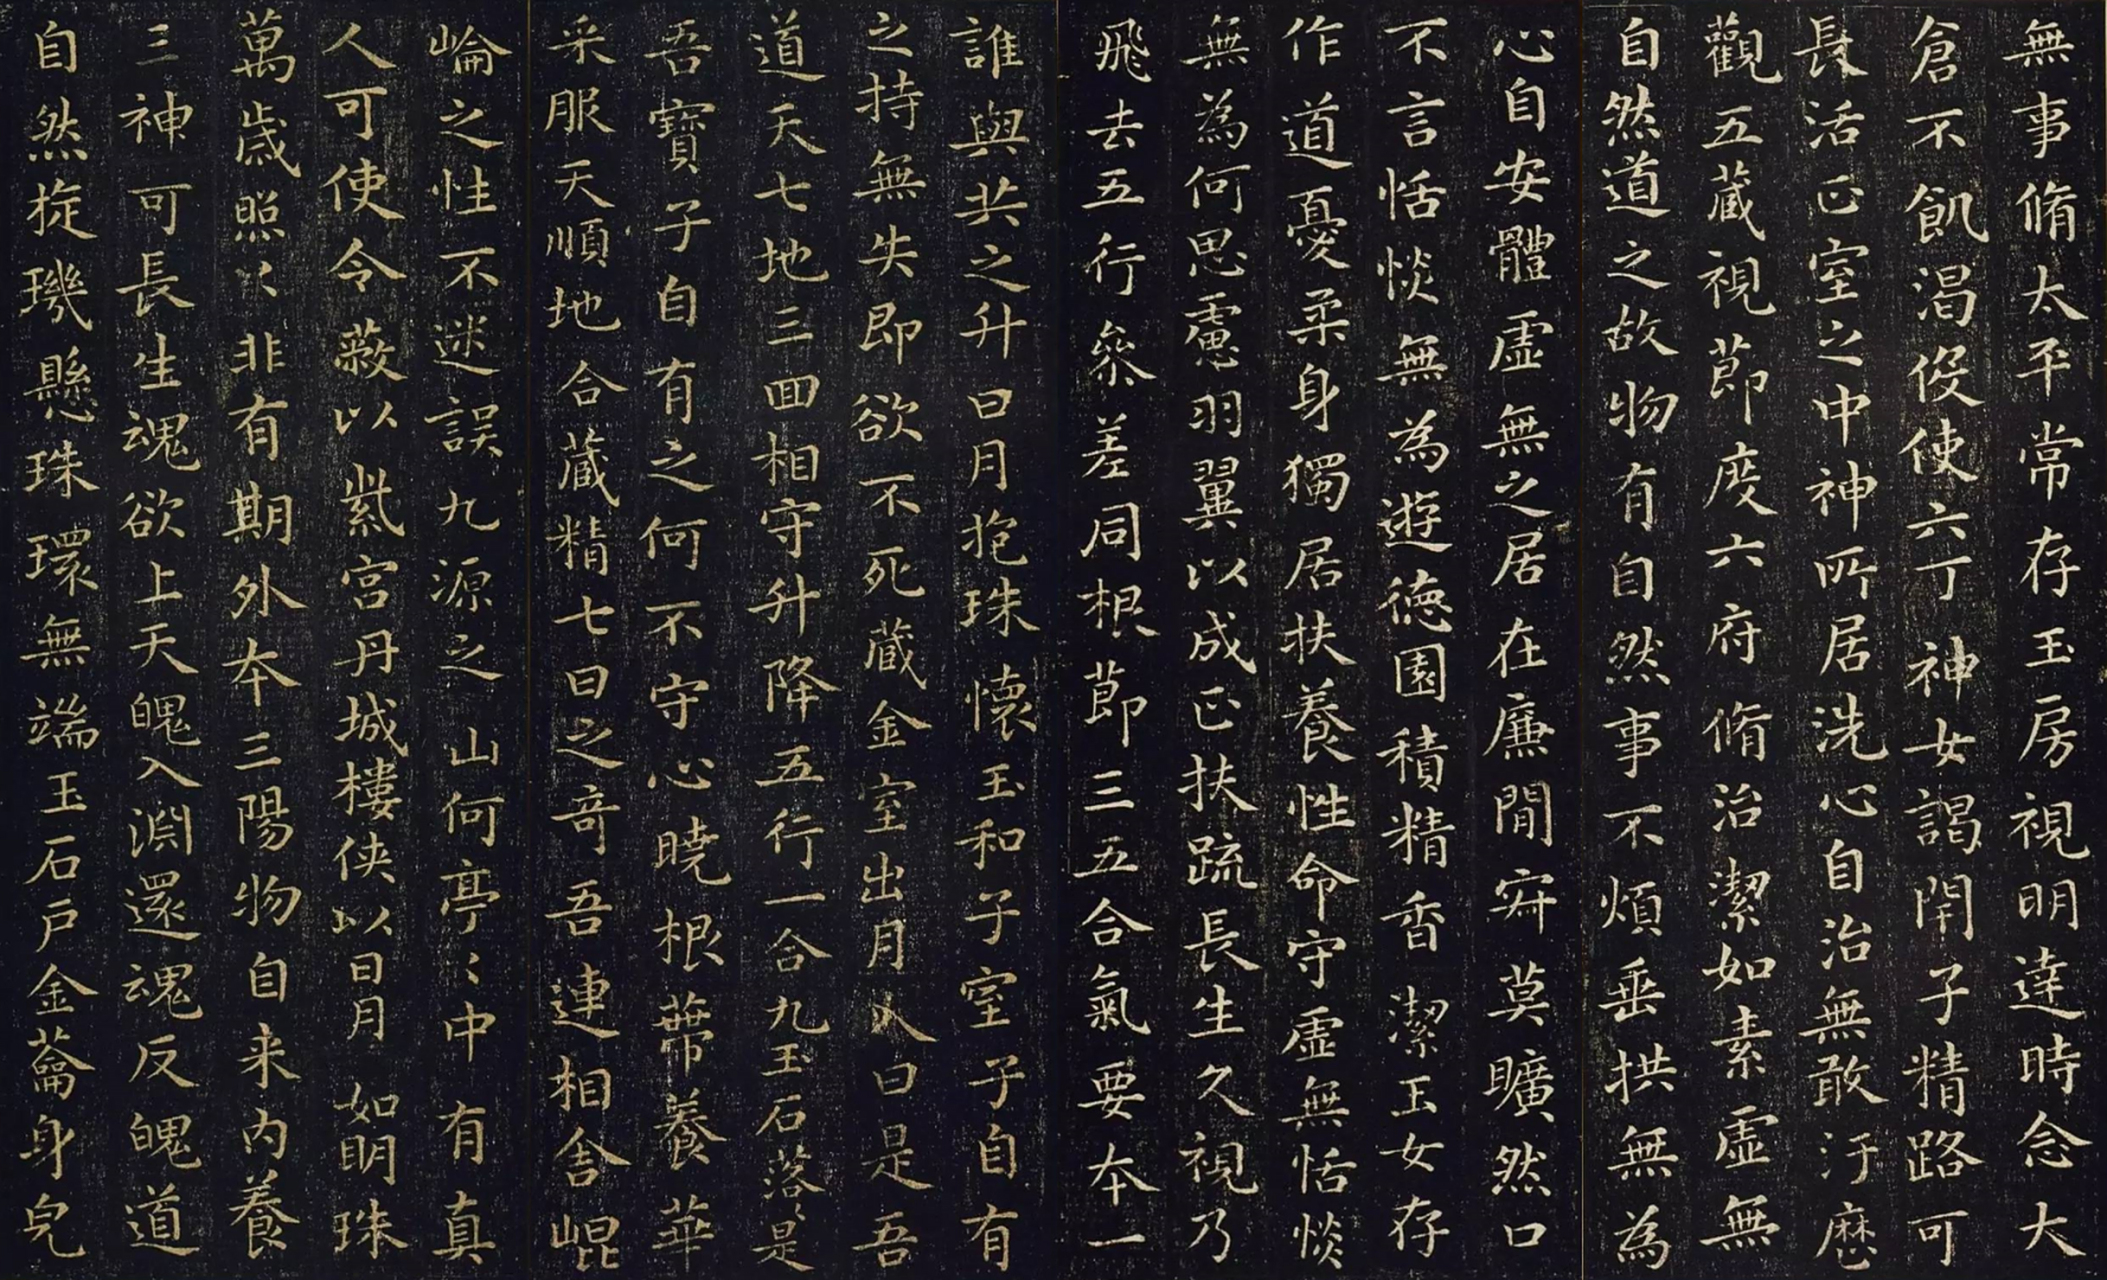 無事脩太平常存玉房視明達時念大
倉不飢渴役使六丁神女謁閇子精路可
長活正室之中神所居洗心自治無敢汙歷
觀五藏視節度六府脩治潔如素虛無
自然道之故物有自然事不煩垂拱無為
心自安體虛無之居在廉間寂莫曠然口
不言恬惔無為遊德園積精香潔玉女存
作道憂柔身獨居扶養性命守虛無恬惔
無為何思慮羽翼以成正扶疏長生久視乃
飛去五行參差同根節三五合氣要本一
誰與共之升日月抱珠懷玉和子室子自有
之持無失即欲不死藏金室出月入日是吾
道天七地三回相守升降五行一合九玉石落落是
吾寶子自有之何不守心曉根蔕養華
采服天順地合藏精七日之奇吾連相舍崐
崘之性不迷誤九源之山何亭〻中有真
人可使令蔽以紫宮丹城樓俠以日月如明珠
萬歲照〻非有期外本三陽物自来內養
三神可長生魂欲上天魄入淵還魂反魄道
自然旋璣懸珠環無端玉石戶金蘥身皃